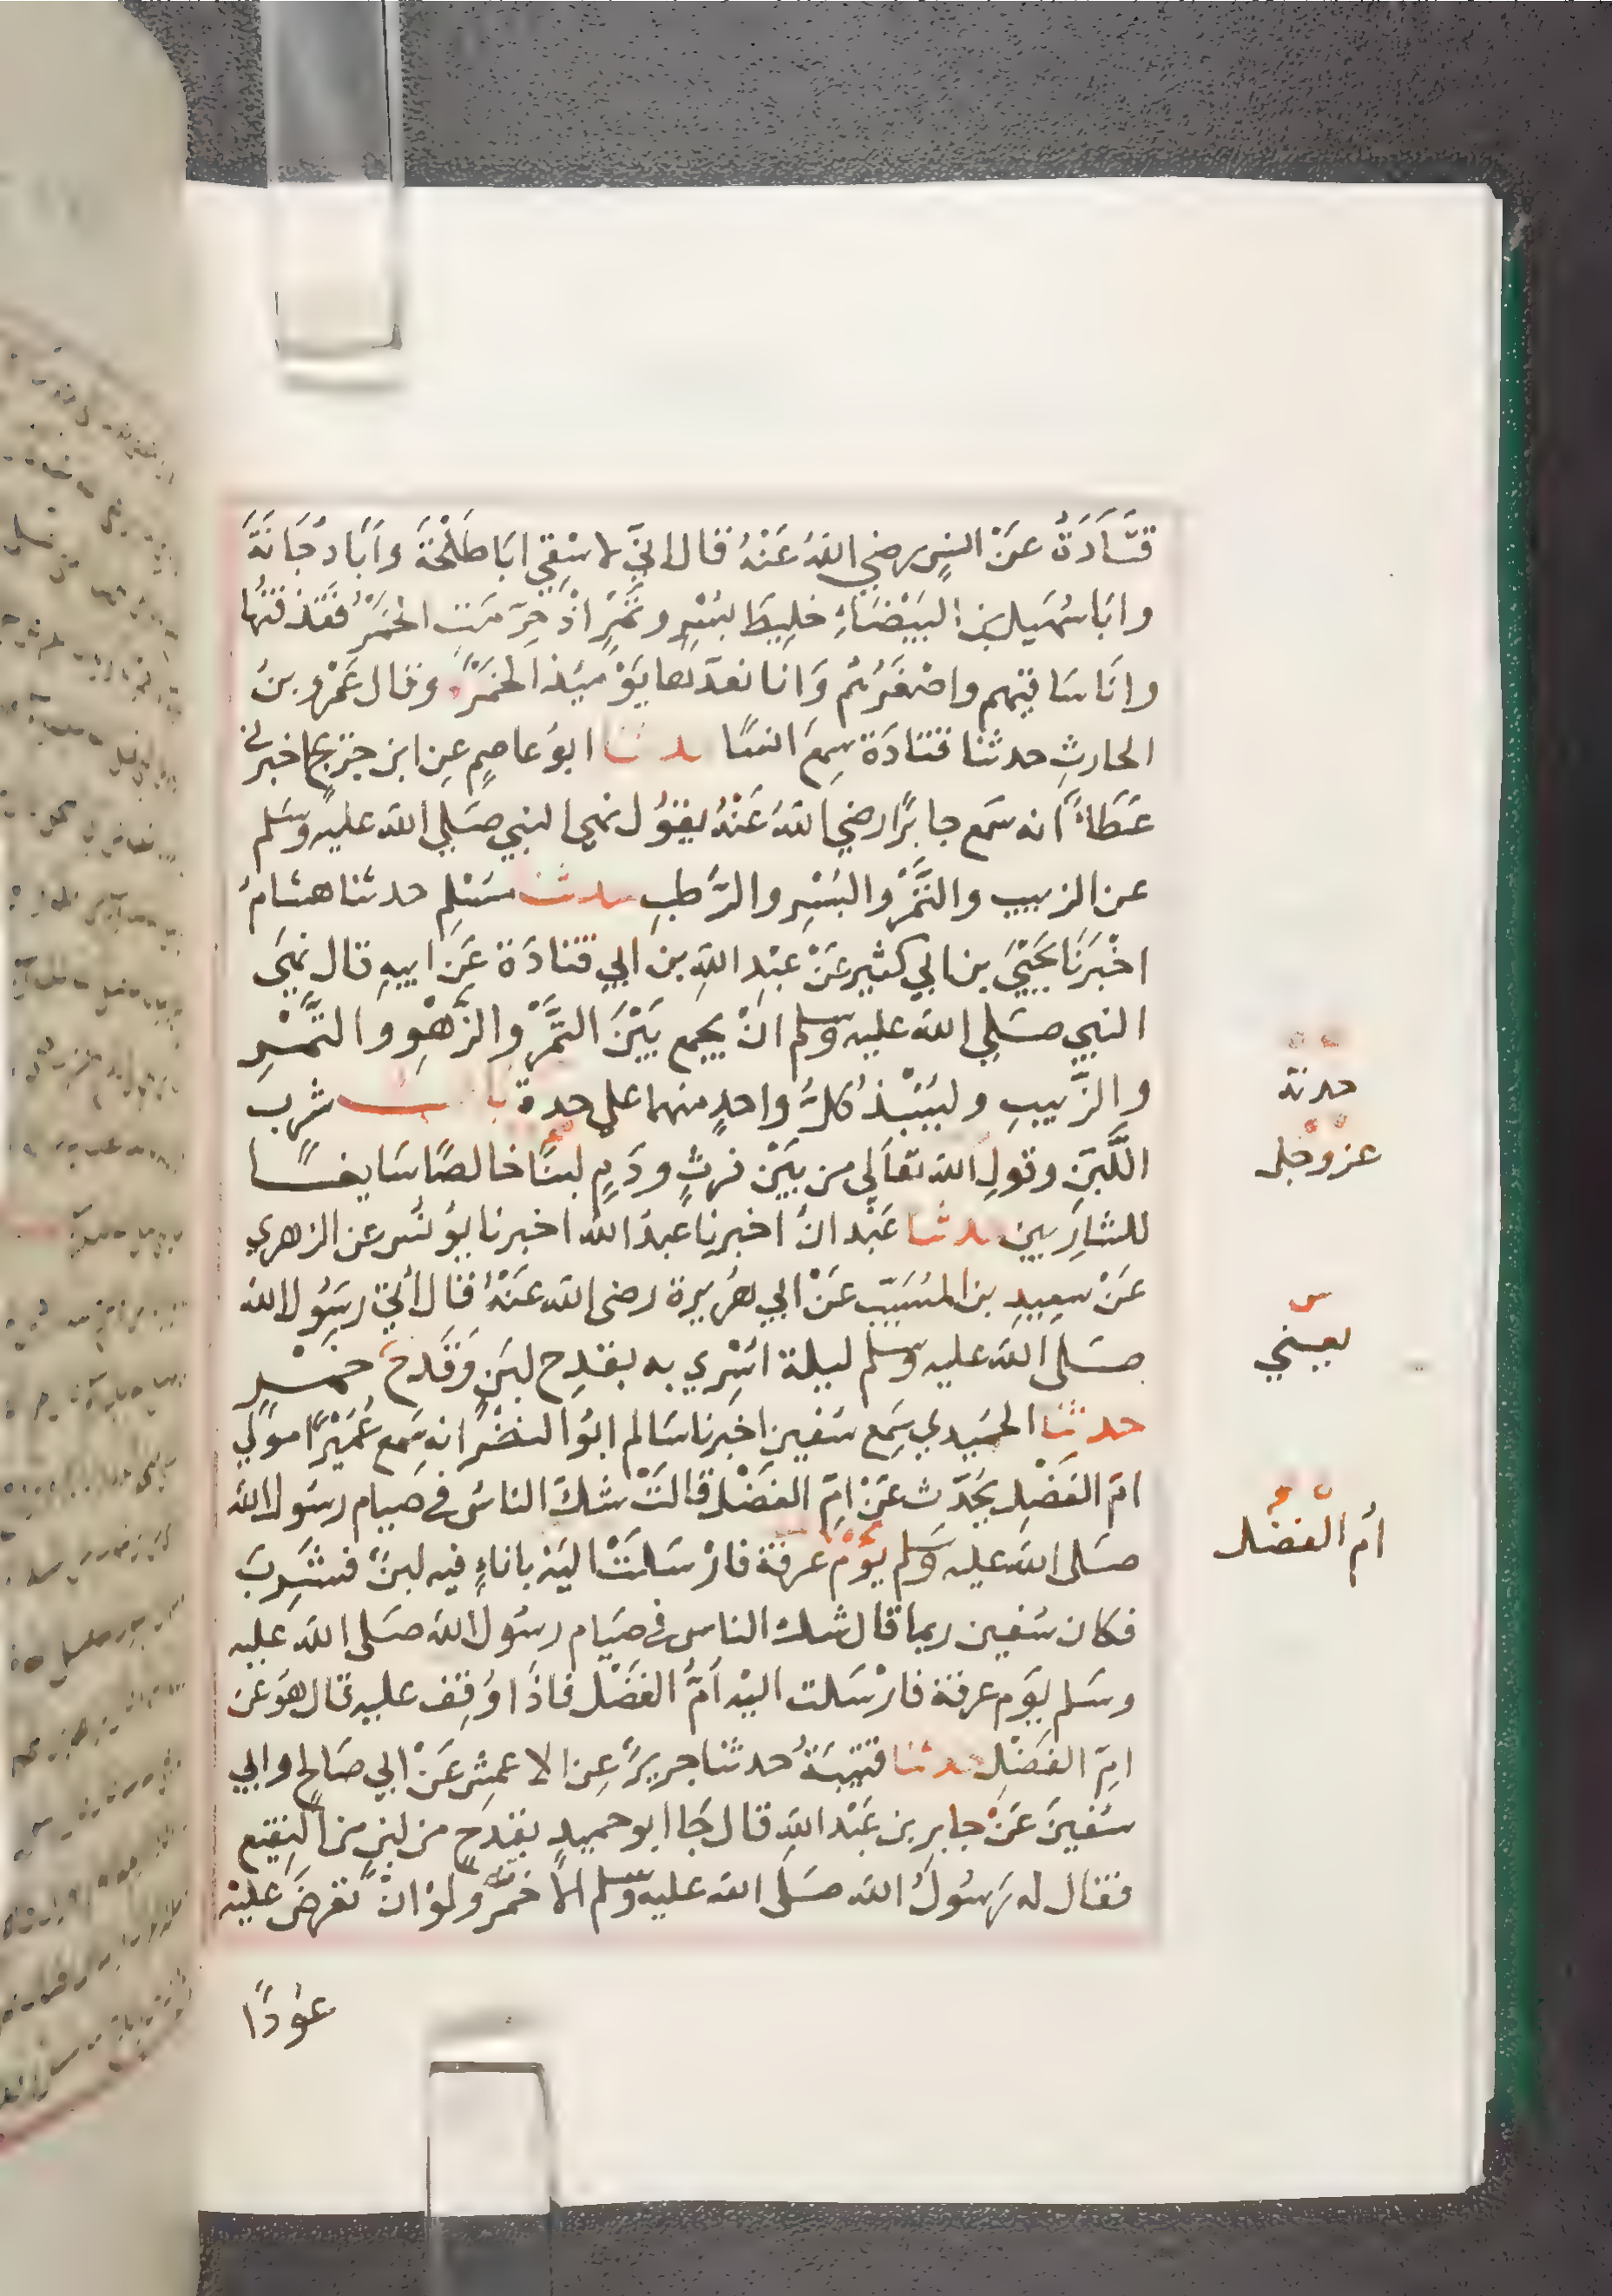 قتَادَةُ عَنْ انسٍ رضي اللهُ عَنْهُ قال انيّ لاسْقِي ابَا طَلْحَةَ وَابَا دُجَانَةَ
وابَا سُهَيل بن البَيْضَاءِ خلِيطَ بُسْرٍ وتَمْرٍ اذْ حِرِّمَتِ الخَمْرُ فقَذفتُها
وانَا سَاقيهم واصْغَرُهُم وَانا نعدّها يَوْمَئِذ الخَمْرَ وقال عَمْرُو بنُ
الحارثِ حدثنا قتادَة سِمعَ انسًا حدثنا ابوُ عاصِمٍ عِن ابن جرَيجٍ اخبرني
عَطَاءٌ انه سَمع جابرًا رضي اللهُ عَنْهُ يقوُل نهى النبي صَلي الله عليه وَسَلم
عن الزبيب والتَّمْرِ والبُسْرِ والرُّطبِ حدثنا مسْلِم حدثنا هشامُ
اخْبَرَنَا يَحَيَى بن ابي كثيرٍ عَنْ عبْدِ اللهِ بن ابي قتادَة عَن ابيهِ قال نهَى
النبي صَلي الله عليه وسَلم انْ يجمع بَيْنَ التمَّرِ والزَّهْوِ والتَّمْرِ
والزَّبيبِ وليُنبْذْ كلُّ واحدٍ منهما على حدة بابُ شرب
اللَّبَنِ وقولِ الله تعَالى من بَيْن فرثٍ ودَمٍ لبنًا خالصًا سَايغًا
للشارِبين حدثنا عَبْدانُ اخبرنا عبدُ الله اخبرنا يوُنسُ عن الزهري
عَنْ سِعِيدِ بن المُسَيّب عَنْ ابي هُريرة رضى الله عَنْهُ قال أُتيَ رسَوُل الله
صَلى الله عليه وسَلم ليلة اسْرِي به بقدِح لبَنٍ وَقَدحِ خَمْرٍ
حدثنا الحمَيدي سَمِع سفين اخبرنا سَالم ابوُ النضْر انه سَمع عُمَيْرًا موليَ
امّ الفضْلِ يُحَدّث عَنْ امِّ الفضْل قالتْ شكَّ الناسُ في صيام رسَول الله
صَلى الله عليه وَسَلم يوْمَ عَرفة فارْسَلتْ اليْهِ باناءٍ فيه لبنٌ فشرِبَ
فكان سُفين ربما قال شك الناس في صيَام رسُول الله صَلى الله عَليه
وسَلم يَوم عَرفة فارْسَلت اليْه اُمُّ الفضْل فاذَا وُقِف عليه قال هوَ عَن
امِّ الفضْلِ حدثنا قتيبَةُ حدثنا جرِيرٌ عِن الاعمشِ عَنْ ابي صَالحٍ وابي
سُفينَ عَنْ جابِر بن عَبْد اللهِ قال جَا ابو حميدٍ بقدحٍ من لبنٍ من النقيع
فقال له رَسُولُ الله صَلى الله عليه وسَلم الاَّ خمَّرته ولوْ انْ تعْرضَ عليْه
عوُدًا
حدته
عز وجل
يعني
اُم الفضل